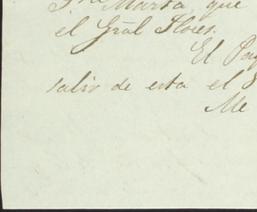 Marta, que
el Gral Flores.
El Pay
salir de esta el 8
Me